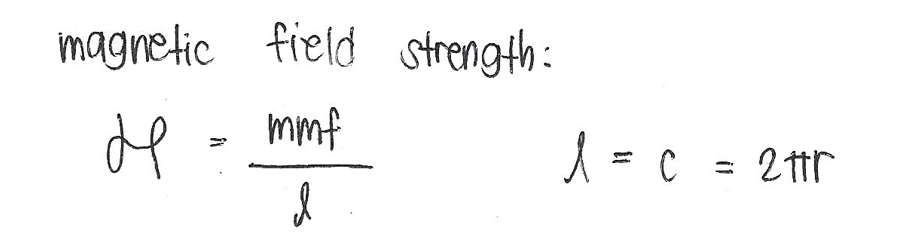 magnetic field strength:
ℋ = mmf / l    l = c = 2πr